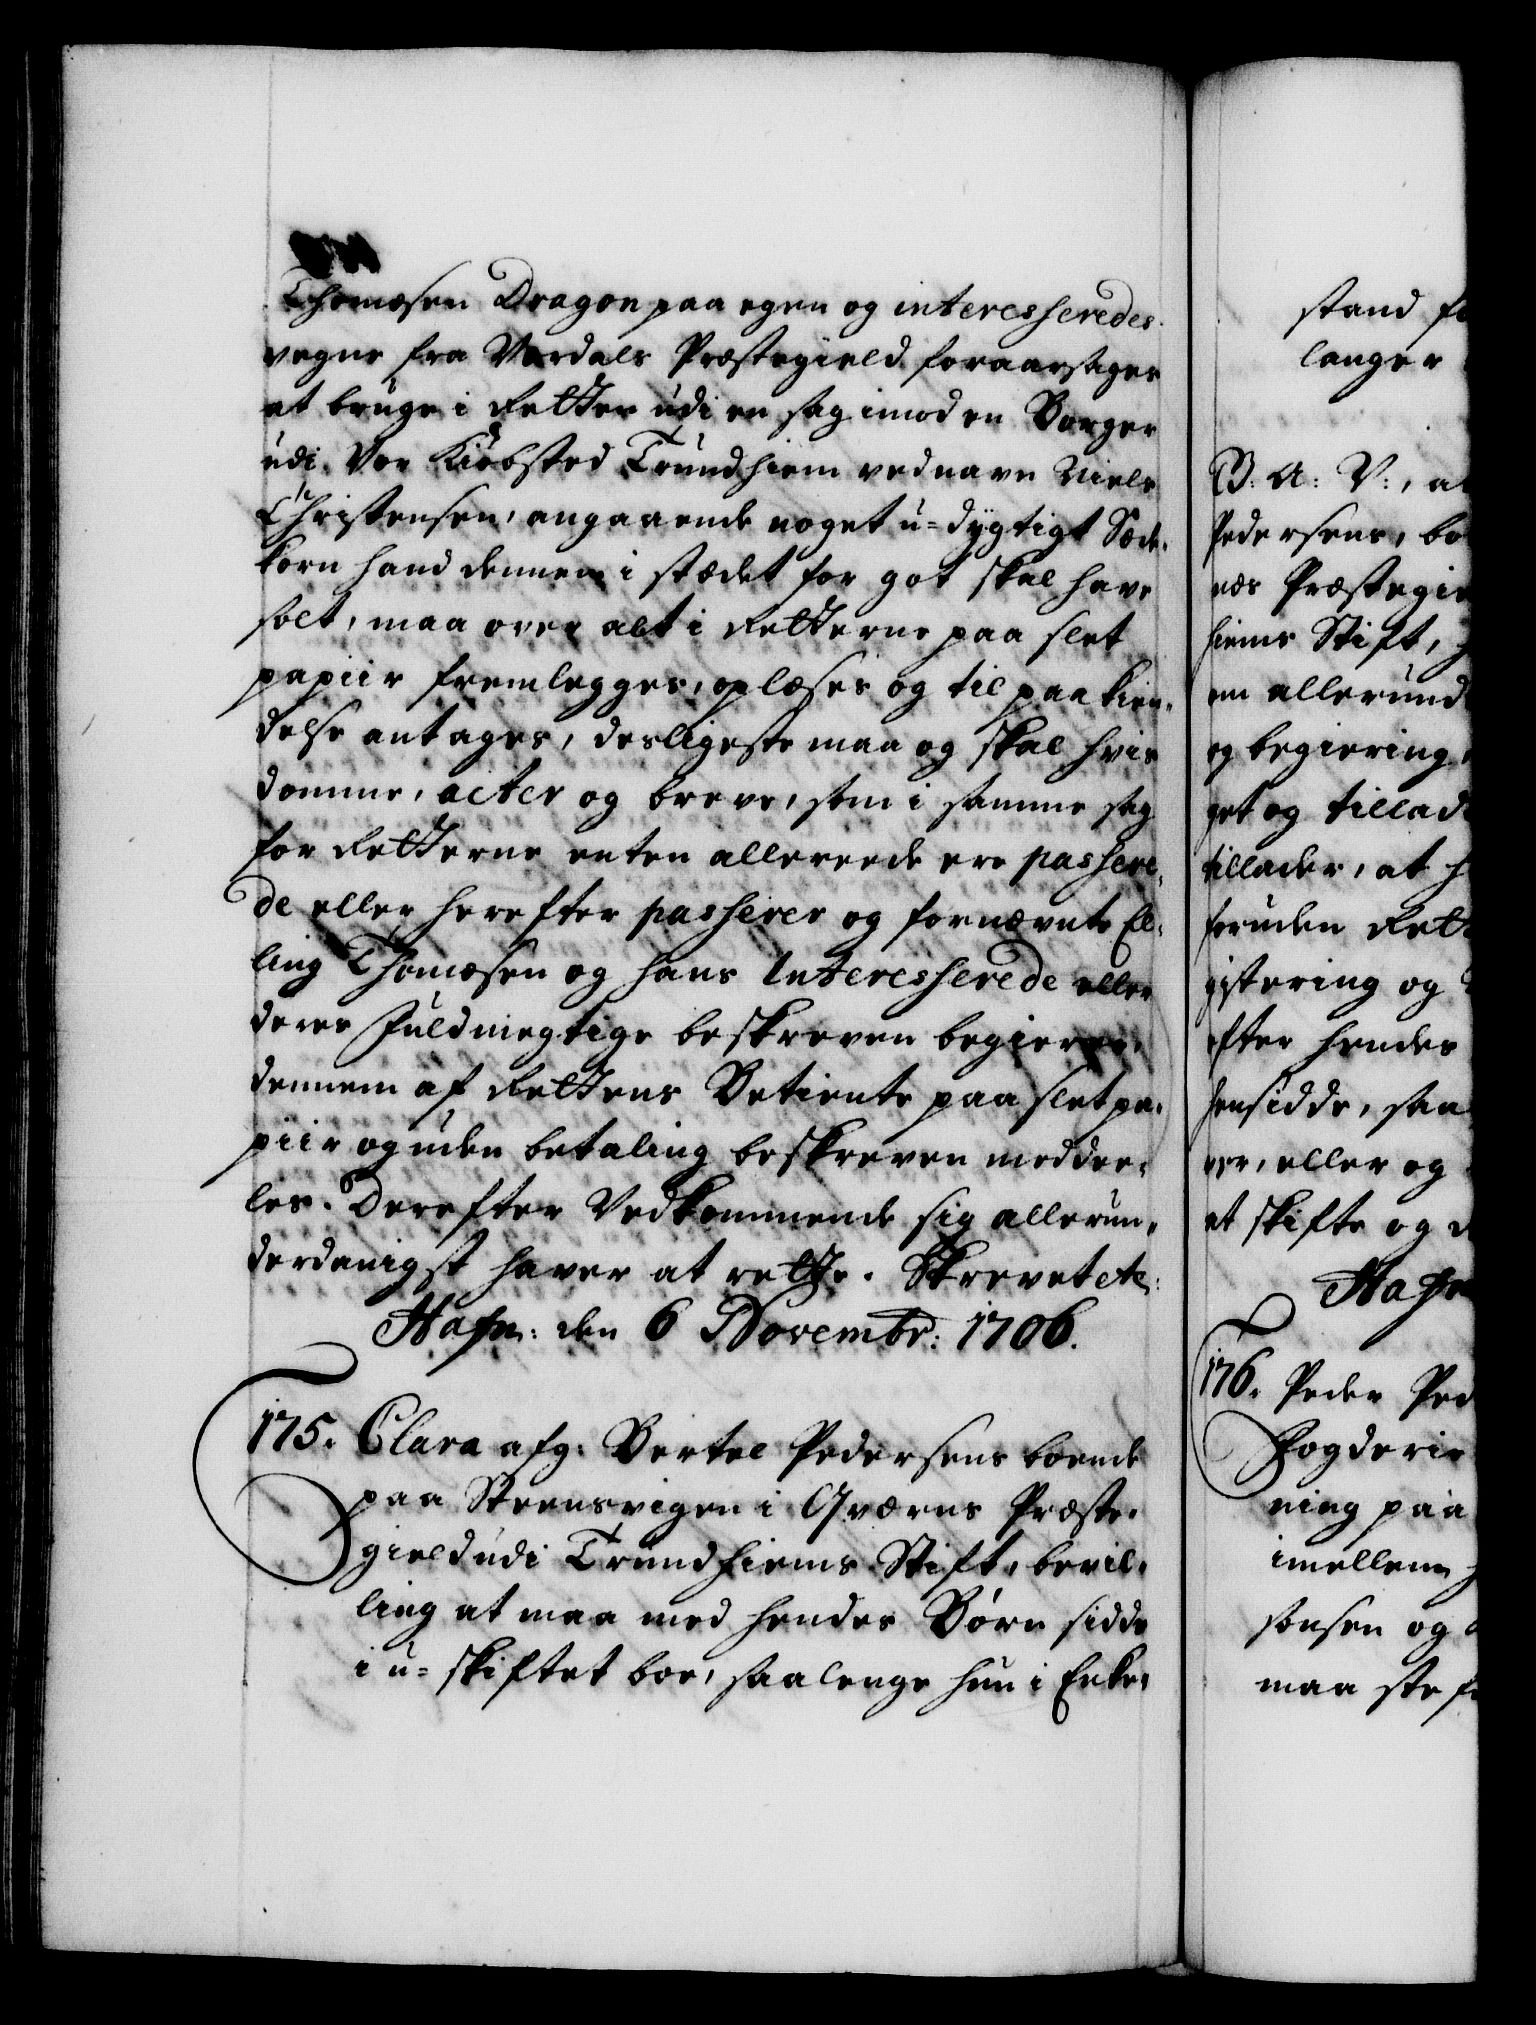 Thomæsen Dragon paa egen og interesseredes
vegne fra Værdals Præstegield foraarsages
at bruge i Retten udi en sag imod en Borger
udi Vor Kiøbsted Trundhiem ved navn Niels
Christensen, angaaende noget u-dygtigt Sæde-
korn hand dennem i stædet for got skal have
solt, maa over alt i Retterne paa slet
papiir fremlegges, oplæses og til paakien-
delse antages, desligeste maa og skal hvis
domme, acter og breve, som i samme sag
for Retterne enten allereede ere passere-
de eller herefter passerer og fornævnte El-
ling Thomæsen og hans Interesserede eller
deres Fuldmegtige beskreven begierer,
dennem af Rettens Betiente paa slet pa-
piir og uden betaling beskreven meddee-
les. Derefter Vedkommende sig allerun-
derdanigst haver at rette. Skrevet etc:
Hafn: den 6 Novembr: 1706.
175. Clara afg: Bertel Pedersens boende
paa Steensvigen i Qværns Præste-
gield udi Trundhiems Stift, bevil-
ling at maa med hendes Børn sidde
i u-skiftet boe, saalenge hun i Enke-
stand
langer
B: A: V:, a
Pedersens, bo
næs Præstegie
hiems Stift,
en allerund
og begiering,
get og tillad
tillader, at h
foruden Rett
gistering og
efter hendes
hensidde, saa
ver, eller og
at skifte og d
Hafn
176. Peder Ped
Fogderie
ning paa
imellem h
sønsen og
maa ste f